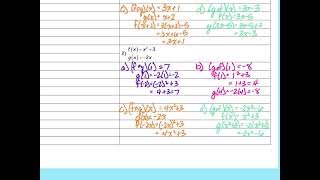 c) (fog)(x) = 3x+1
g(x) = x+2
f(x+2) = 3(x+2)-5
= 3x+6-5
= 3x+1
d) (gof)(x) = 3x-3
f(x) = 3x-5
g(3x-5) = 3x-5+2
= 3x-3
2)
f(x) = x² + 3
g(x) = -2x
a) (fog)(1) = 7
g(1) = -2(1) = -2
f(-2) = (-2)²+3
= 4+3 = 7
b) (gof)(1) = -8
f(1) = 1²+3
= 1+3 = 4
g(4) = -2(4) = -8
c) (fog)(x) = 4x²+3
g(x) = -2x
f(-2x) = (-2x)²+3
= 4x²+3
d) (gof)(x) = -2x²-6
f(x) = x²+3
g(x²+3) = -2(x²+3)
= -2x²-6